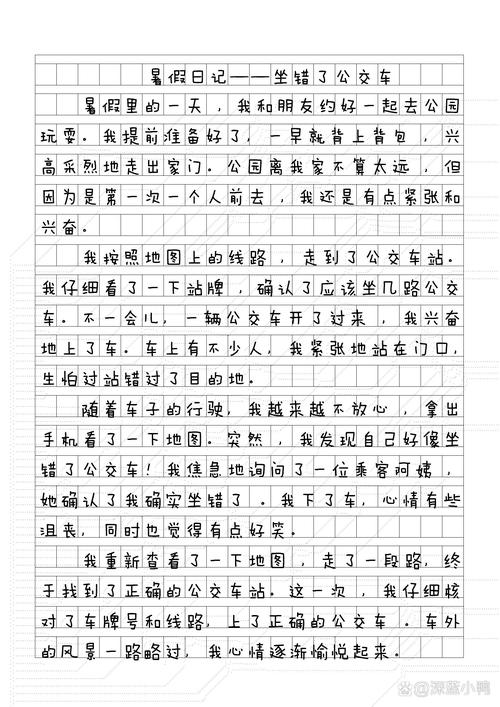 暑假日记——坐错了公交车
暑假里的一天，我和朋友约好一起去公园
玩耍。我提前准备好了，一早就背上背包，兴
高采烈地走出家门。公园离我家不算太远，但
因为是第一次一个人前去，我还是有点紧张和
兴奋。
我按照地图上的线路，走到了公交车站。
我仔细看了一下站牌，确认了应该坐几路公交
车。不一会儿，一辆公交车开了过来，我兴奋
地上了车。车上有不少人，我紧张地站在门口，
生怕过站错过了目的地。
随着车子的行驶，我越来越不放心，拿出
手机看了一下地图。突然，我发现自己好像坐
错了公交车！我焦急地询问了一位乘客阿姨，
她确认了我确实坐错了。我下了车，心情有些
沮丧，同时也觉得有点好笑。
我重新查看了一下地图，走了一段路，终
于找到了正确的公交车站。这一次，我仔细核
对了车牌号和线路，上了正确的公交车。车外
的风景一路略过，我心情逐渐愉悦起来。
@深蓝小鸭